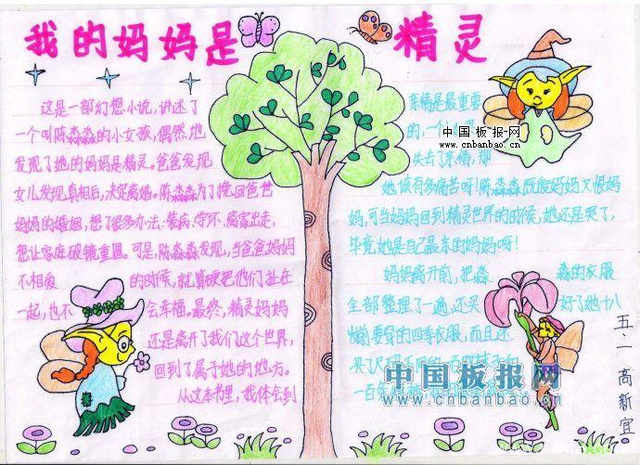 我的妈妈是精灵
这是一部幻想小说,讲述了
一个叫陈淼淼的小女孩,偶然地
发现了她的妈妈是精灵。爸爸发现
女儿发现真相后,决定离婚。陈淼淼为了挽回爸爸
妈妈的婚姻,想了很多办法:装病、学坏、离家出走,
想让家庭破镜重圆。可是,陈淼淼发现,当爸爸妈妈
不相爱的时候,就算硬把他们扯在
一起,也不会幸福。最终,精灵妈妈
还是离开了我们这个世界,
回到了属于她的地方。
从这本书里,我体会到
亲情是最重要
的,一个
失去了亲情,那
她做有多痛苦呀!陈淼淼既爱妈妈又恨妈
妈,可当妈妈回到精灵世界的时候,她还是哭了,
毕竟她是自己最亲的妈妈呀!
妈妈离开前,把淼淼的衣服
全部整理了一遍,还买好了她十八
岁要穿的四季衣服,而且还
一百
五.二 高新宜
中国板报网
www.cnbanbao.cn
中国板报网
www.cnbanbao.cn